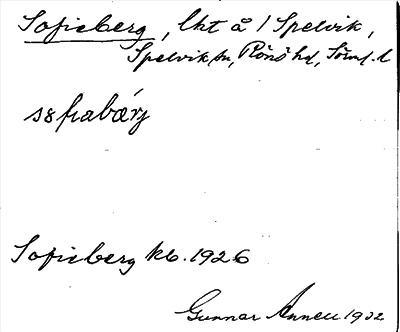 Sofieberg, lht å / Spelvik,
Spelvik sn, Rönö hd, Söml. l
Sofieberg kb. 1926
Gunnar Annell 1932